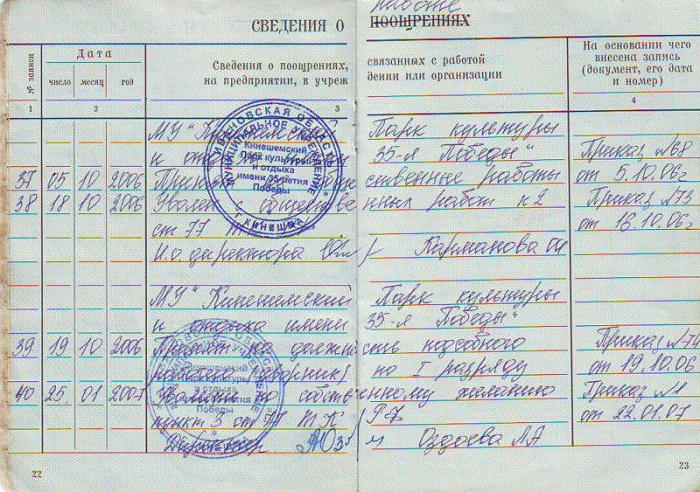 СВЕДЕНИЯ О работе ПООЩРЕНИЯХ
№ записи
Дата
число месяц год
Сведения о поощрениях, связанных с работой
на предприятии, в учреждении или организации
На основании чего
внесена запись
(документ, его дата
и номер)
1 2 3 4
МУ "Кинешемский Парк культуры
и отдыха 35-я Победы"
37 05 10 2006 общественные работы Приказ №68
от 5.10.06г
38 18 10 2006 Уволен с общественных работ п2 Приказ №73
ст 77 от 18.10.06г
И.о. директора Карманова
МУ "Кинешемский Парк культуры
и отдыха имени 35-я Победы"
39 19 10 2006 Принят на должность подсобного Приказ №74
по I разряду от 19.10.06
40 25 01 2007 Уволен по собственному желанию Приказ №1
пункт 3 ст 77 ТК РФ от 22.01.07
Директор Оздоева ЛА
ИВАНОВСКАЯ ОБЛАСТЬ
МУНИЦИПАЛЬНОЕ УЧРЕЖДЕНИЕ
Кинешемский
Парк культуры
и отдыха
имени 35-летия
Победы
г. КИНЕШМА
22
23